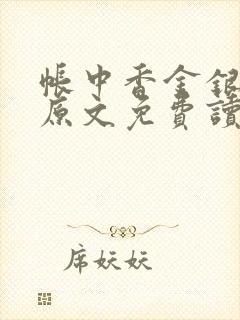 帳中香金銀
原文免費讀
席妖妖